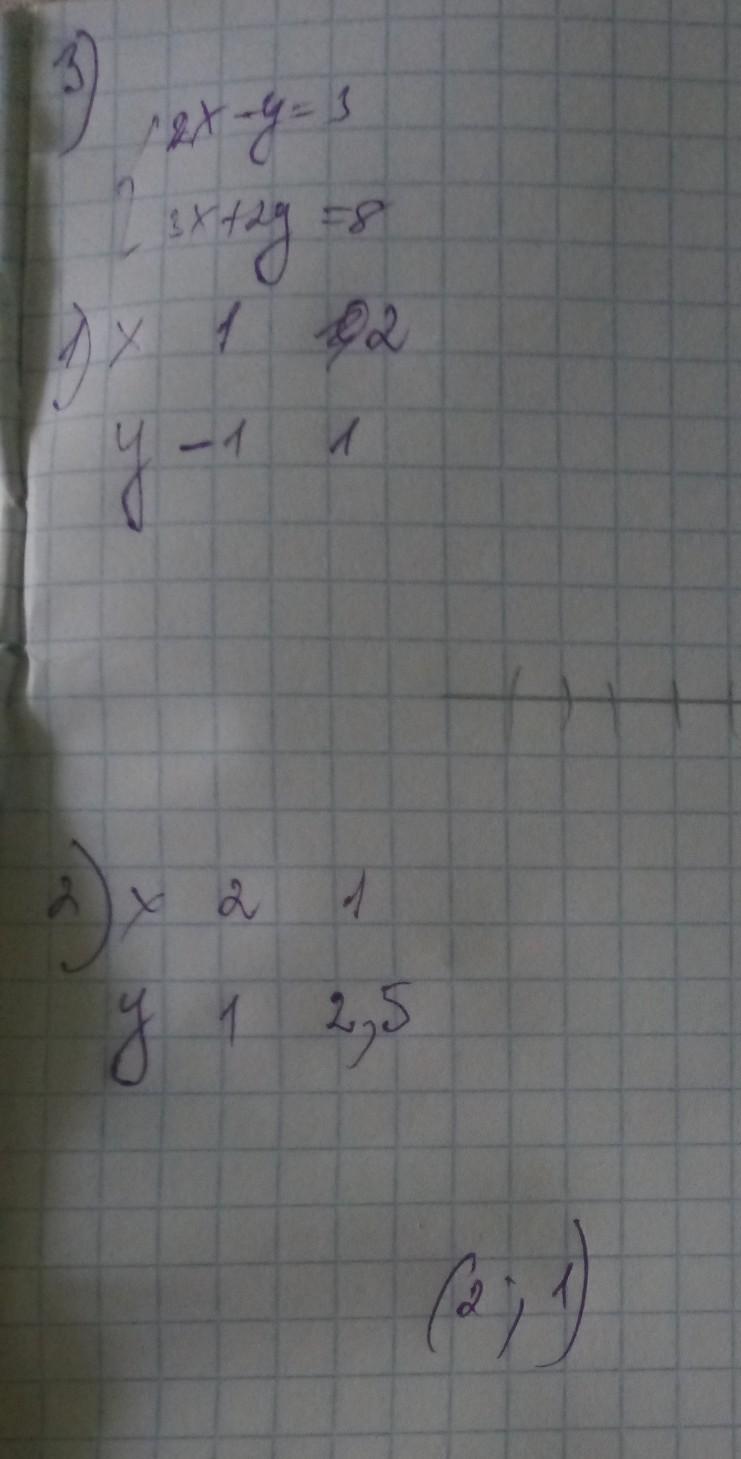 3)
2x-y=3
3x+2y=8
1) x 1 2
y -1 1
2) x 2 1
y 1 2,5
(2; 1)